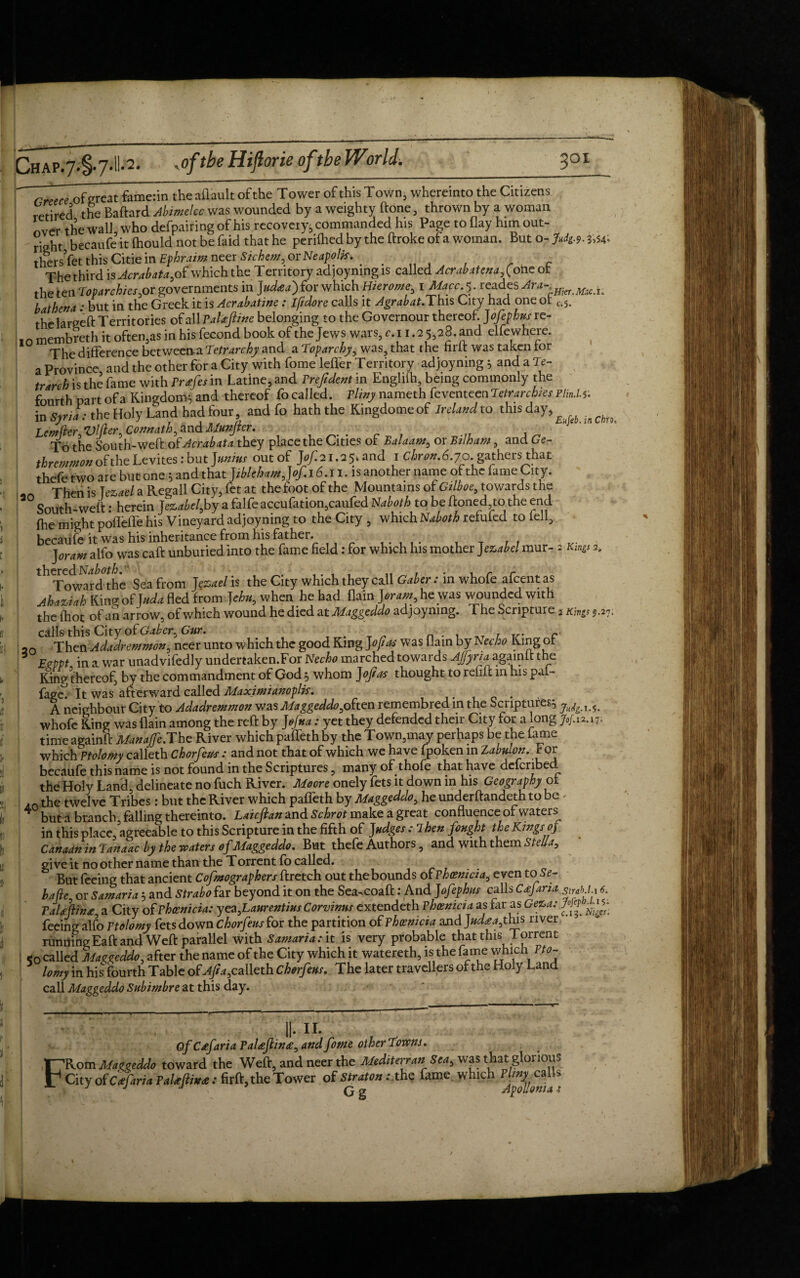 CHAP.7.§.7.ll.2. of the Hiſtorie of the World. 301
Greece, of great fame: in the aſſault of the Tower of this Town, whereinto the Citizens
retired, the Baſtard Abimelec was wounded by a weighty ſtone, thrown by a woman
over the wall, who deſpairing of his recovery, commanded his Page to ſlay him out-
right, becauſe it ſhould not be ſaid that he periſhed by the ſtroke of a woman. But o- Judg.9. 3,54.
thers ſet this Citie in Ephraim neer Sichem, or Neapolis.
The third is Acrabata, of which the Territory adjoyning is called Acrabatena, (one of
the ten Toparchies, or governments in Judæa) for which Hierome, 1 Macc.5. reades Ara- Hier. Mac.1.
bathena: but in the Greek it is Acrabatine: Iſidore calls it Agrabat. This City had one of c.5.
the largeſt Territories of all Palæſtine belonging to the Governour thereof. Joſephus re-
10 membreth it often, as in his ſecond book of the Jews wars, c.11.25,28. and elſewhere.
The difference between a Tetrarchy and a Toparchy, was, that the firſt was taken for
a Province, and the other for a City with ſome leſſer Territory adjoyning; and a Te-
trarch is the ſame with Præſes in Latine, and Preſident in Engliſh, being commonly the
fourth part of a Kingdom; and thereof ſo called. Pliny nameth ſeventeen Tetrarchies Plin.l.5.
in Syria: the Holy Land had four, and ſo hath the Kingdome of Ireland to this day,
Lemſter, Vlſter, Connath, and Munſter. Euſeb. in Chro.
To the South-weſt of Acrabata they place the Cities of Balaam, or Bilham, and Ge-
thremmon of the Levites: but Junius out of Joſ.21.25. and 1 Chron.6.70. gathers that
theſe two are but one; and that Jibleham, Joſ.16.11. is another name of the ſame City.
20 Then is Jezael a Regall City, ſet at the foot of the Mountains of Gilboe, towards the
South-weſt: herein Jezabel, by a falſe accuſation, cauſed Naboth to be ſtoned, to the end
ſhe might poſſeſſe his Vineyard adjoyning to the City, which Naboth refuſed to ſell,
becauſe it was his inheritance from his father.
Joram alſo was caſt unburied into the ſame field: for which his mother Jezabel mur- 2 Kings 2.
thered Naboth.
Toward the Sea from Jezael is the City which they call Gaber: in whoſe aſcent as
Ahaziah King of Juda fled from Jehu, when he had ſlain Joram, he was wounded with
the ſhot of an arrow, of which wound he died at Maggeddo adjoyning. The Scripture 2 Kings 9.27.
calls this City of Gaber, Gur.
30 Then Adadremmon, neer unto which the good King Joſias was ſlain by Necho King of
Egppt, in a war unadviſedly undertaken. For Necho marched towards Aſſyria againſt the
King thereof, by the commandment of God; whom Joſias thought to reſiſt in his paſ-
ſage. It was afterward called Maximianoplis.
A neighbour City to Adadremmon was Maggeddo, often remembred in the Scriptures; Judg.1.5.
whoſe King was ſlain among the reſt by Joſua: yet they defended their City for a long Joſ.12.17.
time againſt Manaſſe. The River which paſſeth by the Town, may perhaps be the ſame
which Ptolomy calleth Chorſeus: and not that of which we have ſpoken in Zabulon. For
becauſe this name is not found in the Scriptures, many of thoſe that have deſcribed
the Holy Land, delineate no ſuch River. Moore onely ſets it down in his Geography of
40 the twelve Tribes: but the River which paſſeth by Maggeddo, he underſtandeth to be
but a branch, falling thereinto. Laicſtan and Schrot make a great confluence of waters
in this place, agreeable to this Scripture in the fifth of Judges: Then fought the Kings of
Canaan in Tanaac by the waters of Maggeddo. But theſe Authors, and with them Stella,
give it no other name than the Torrent ſo called.
But ſeeing that ancient Coſmographers ſtretch out the bounds of Phœnicia, even to Se-
baſte, or Samaria; and Strabo far beyond it on the Sea-coaſt: And Joſephus calls Cæſaria Strab.l.16.
Palæſtinæ, a City of Phœnicia: yea, Laurentius Corvinus extendeth Phœnicia as far as Geza: Joſeph.l.15.
ſeeing alſo Ptolomy ſets down Chorſeus for the partition of Phœnicia and Judæa, this river c.13. Niger.
running Eaſt and Weſt parallel with Samaria: it is very probable that this Torrent
50 called Maggeddo, after the name of the City which it watereth, is the ſame which Pto-
lomy in his fourth Table of Aſia, calleth Chorſeus. The later travellers of the Holy Land
call Maggeddo Subimbre at this day.
ll. II.
Of Cæſaria Palæſtinæ, and ſome other Towns.
FRom Maggeddo toward the Weſt, and neer the Mediterran Sea, was that glorious
City of Cæſaria Palæſtinæ: firſt, the Tower of Straton: the ſame which Pliny calls
G g Apollonia: